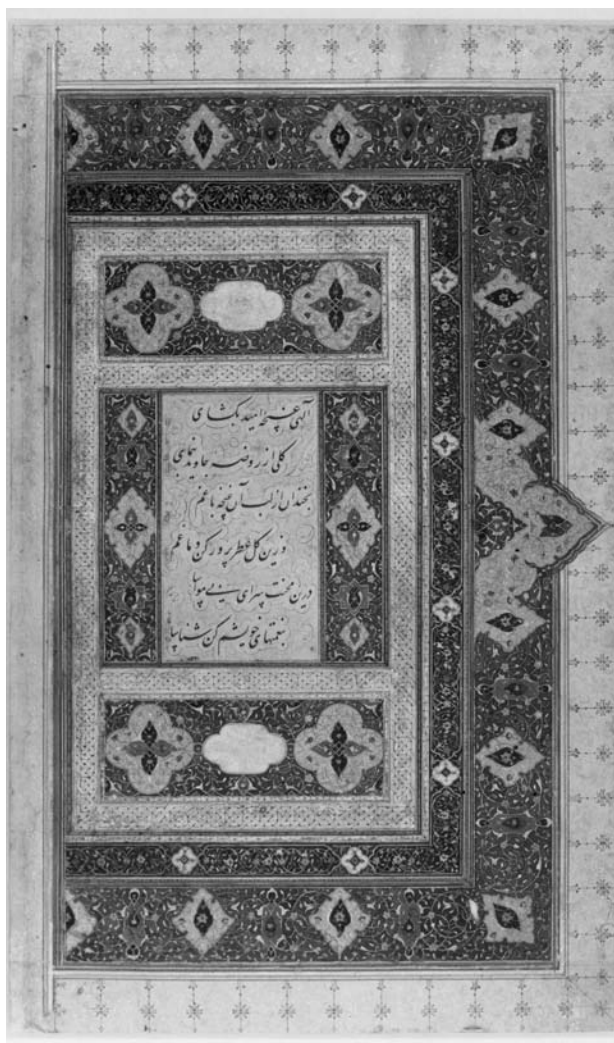 الهی غنچه امید بکشای
کلی از روضه جاوید بنمای
بخندان از لب آن غنچه باغم
وزین کل عطر پرور کن دماغم
درین محنت سرای بی مواسا
بنعمتهای خویشم کن شناسا